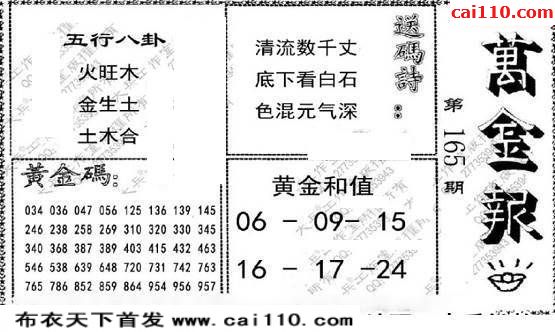 cai110.com
萬金報
第165期
送碼詩：
清流数千丈
底下看白石
色混元气深
五行八卦
火旺木
金生土
土木合
黃金碼：
034 036 047 056 125 136 139 145
246 238 258 269 310 320 330 345
340 368 387 389 403 415 432 463
546 538 639 648 720 731 762 763
765 786 852 859 864 954 956 957
黄金和值
06 - 09- 15
16 - 17 -24
布衣天下首发 www.cai110.com